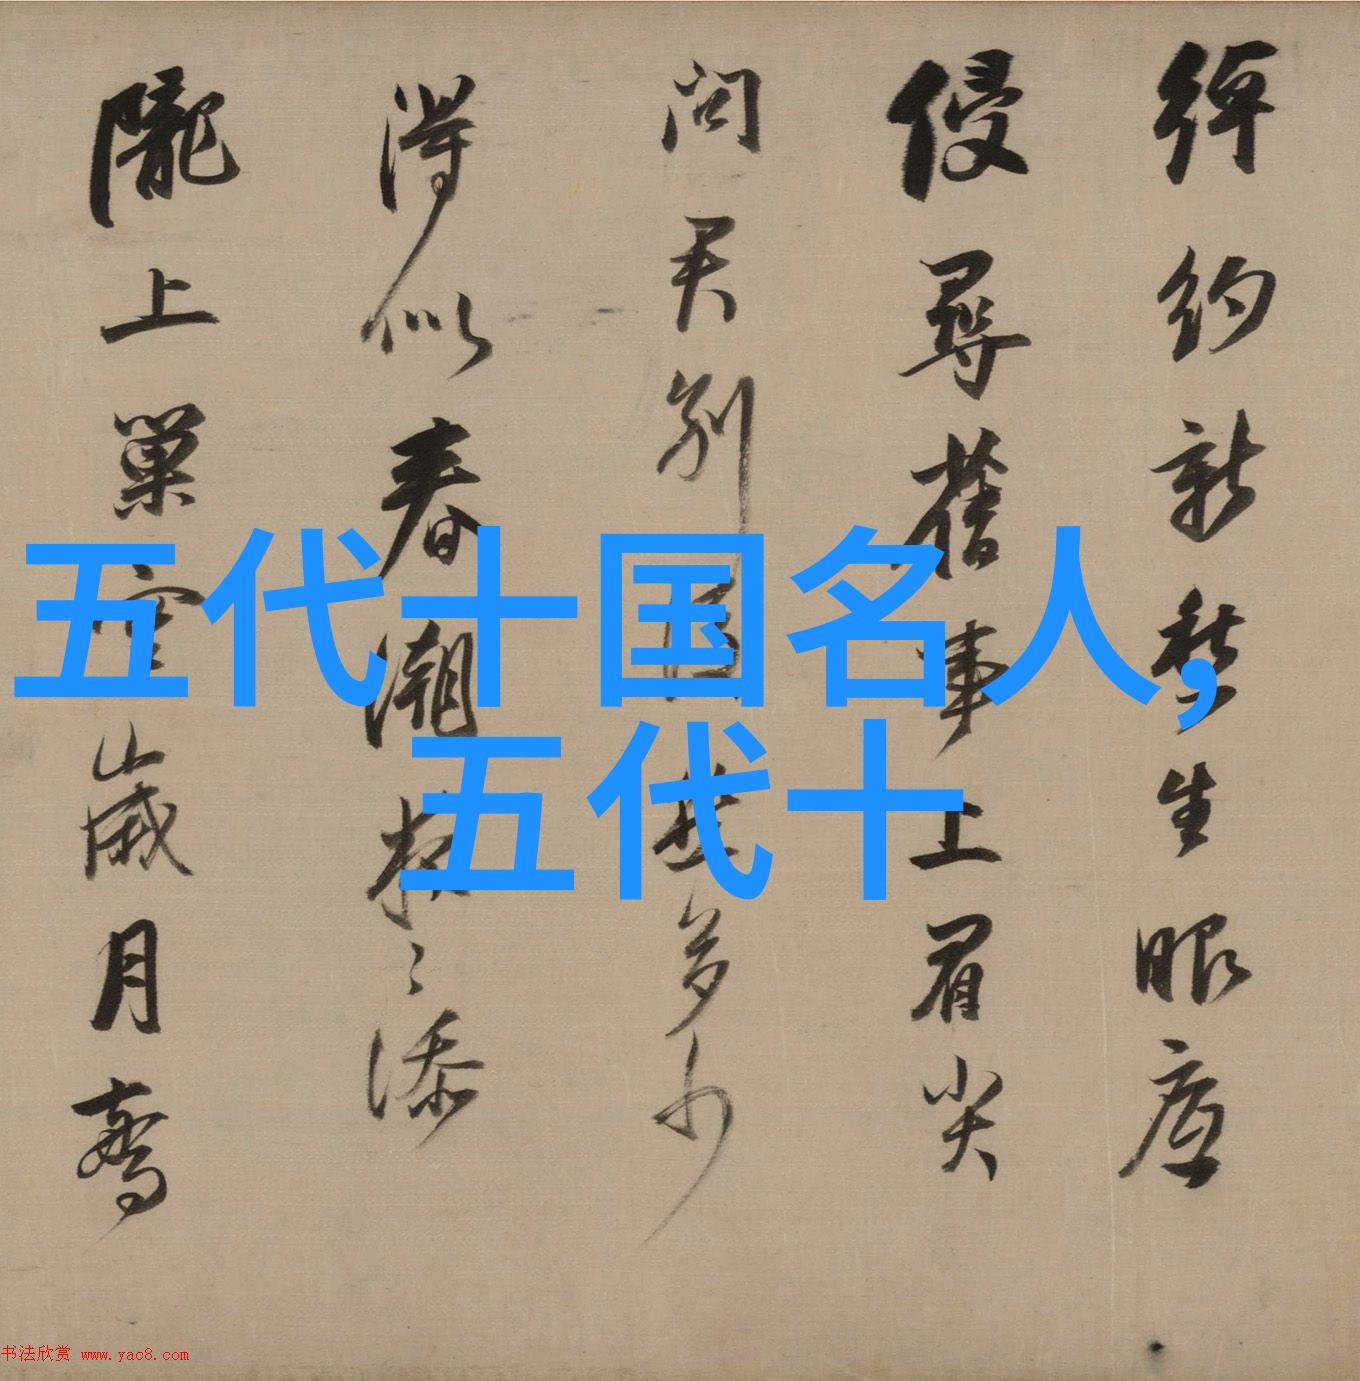 綽約新生眼底
侵尋舊事上眉尖
問君別後愁多少
得似春潮夜々添
隴上巢空歲月驚
五代十国名人,
五代十
书法欣赏 www.yac8.com